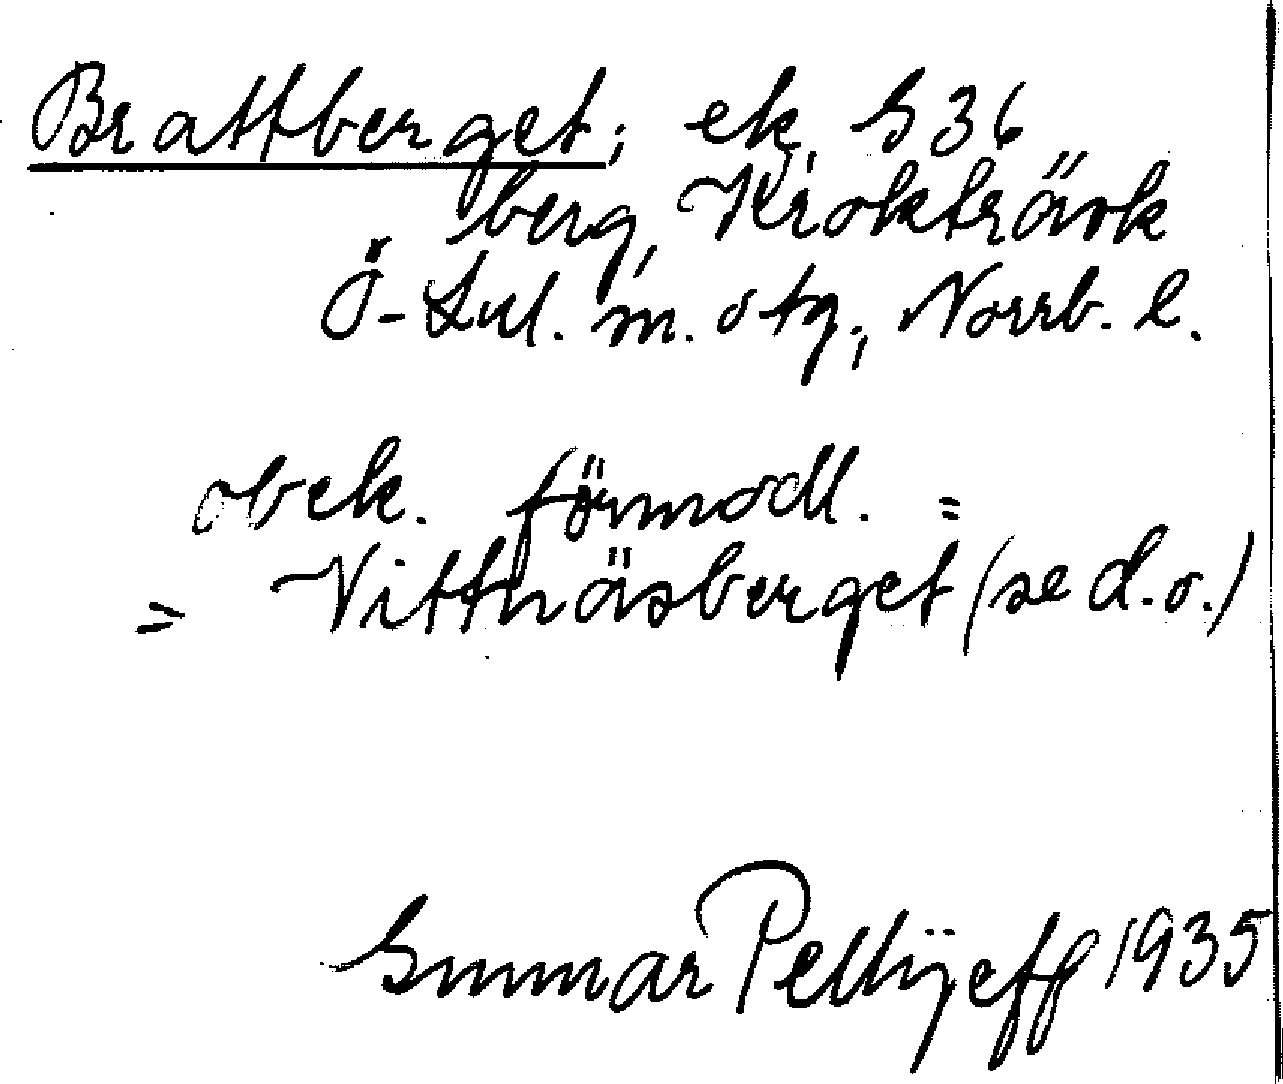 Brattberget; ek. S 36
berg, Krokträsk
Ö-Lul. m. otg., Norrb. l.
obek. förmodl. =
= Vittnäsberget (se d.o.)
Gunnar Pellijeff 1935